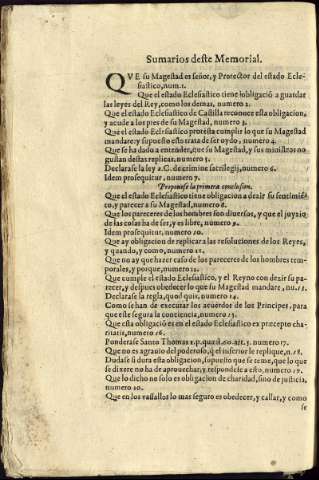 Sumarios deste Memorial.
QVE su Magestad es señor, y Protector del estado Ecle-
siastico, num. 1.
Que el estado Eclesiastico tiene lobligació a guardar
las leyes del Rey, como los demas, numero 2.
Que el estado Eclesiastico de Castilla reconoce esta obligacion,
y acude a los pies de su Magestad, numero 3.
Que el estado Eclesiastico protesta cumplir lo que su Magestad
mandare: y supuesto esto trata de ser oydo, numero 4.
Que se ha dado a entender, que su Magestad, y sus ministros no
gustan destas replicas, numero 5.
Declarase la ley 2. C. de crimine sacrilegij, numero 6.
Idem prosequitur, numero 7.
Proponese la primera conclusion.
Que el estado Eclesiastico tiene obligacion a dezir su sentimié-
to, y parecer a su Magestad, numero 8.
Que los pareceres de los hombres son diuersos, y que el juyzio
de las cosas ha de ser, y es libre, numero 9.
Idem prosequitur, numero 10.
Que ay obligacion de replicar a las resoluciones de los Reyes,
y quando, y como, numero 11.
Que no ay que hazer caso de los pareceres de los hombres tem-
porales, y porque, numero 12.
Que cumple el estado Eclesiastico, y el Reyno con dezir su pa-
recer, y despues obedecer lo que su Magestad mandare, nu. 13.
Declarase la regla, quod quis, numero 14.
Como se han de executar los acuerdos de los Principes, para
que este segura la conciencia, numero 15.
Que esta obligació es en el estado Eclesiastico ex præcepto cha-
ritatis, numero 16.
Ponderase Santo Thomas 1. p. quæst. 60. art. 5. numero 17.
Que no es agrauio del poderoso, q̃ el inferior le replique, n. 18.
Dudase si dura esta obligacion, supuesto que se teme, que lo que
se dixere no ha de aprouechar, y respondese a esto, numero 19.
Que lo dicho no solo es obligacion de charidad, sino de justicia,
numero 20.
Que en los vassallos lo mas seguro es obedecer, y callar, y como
se